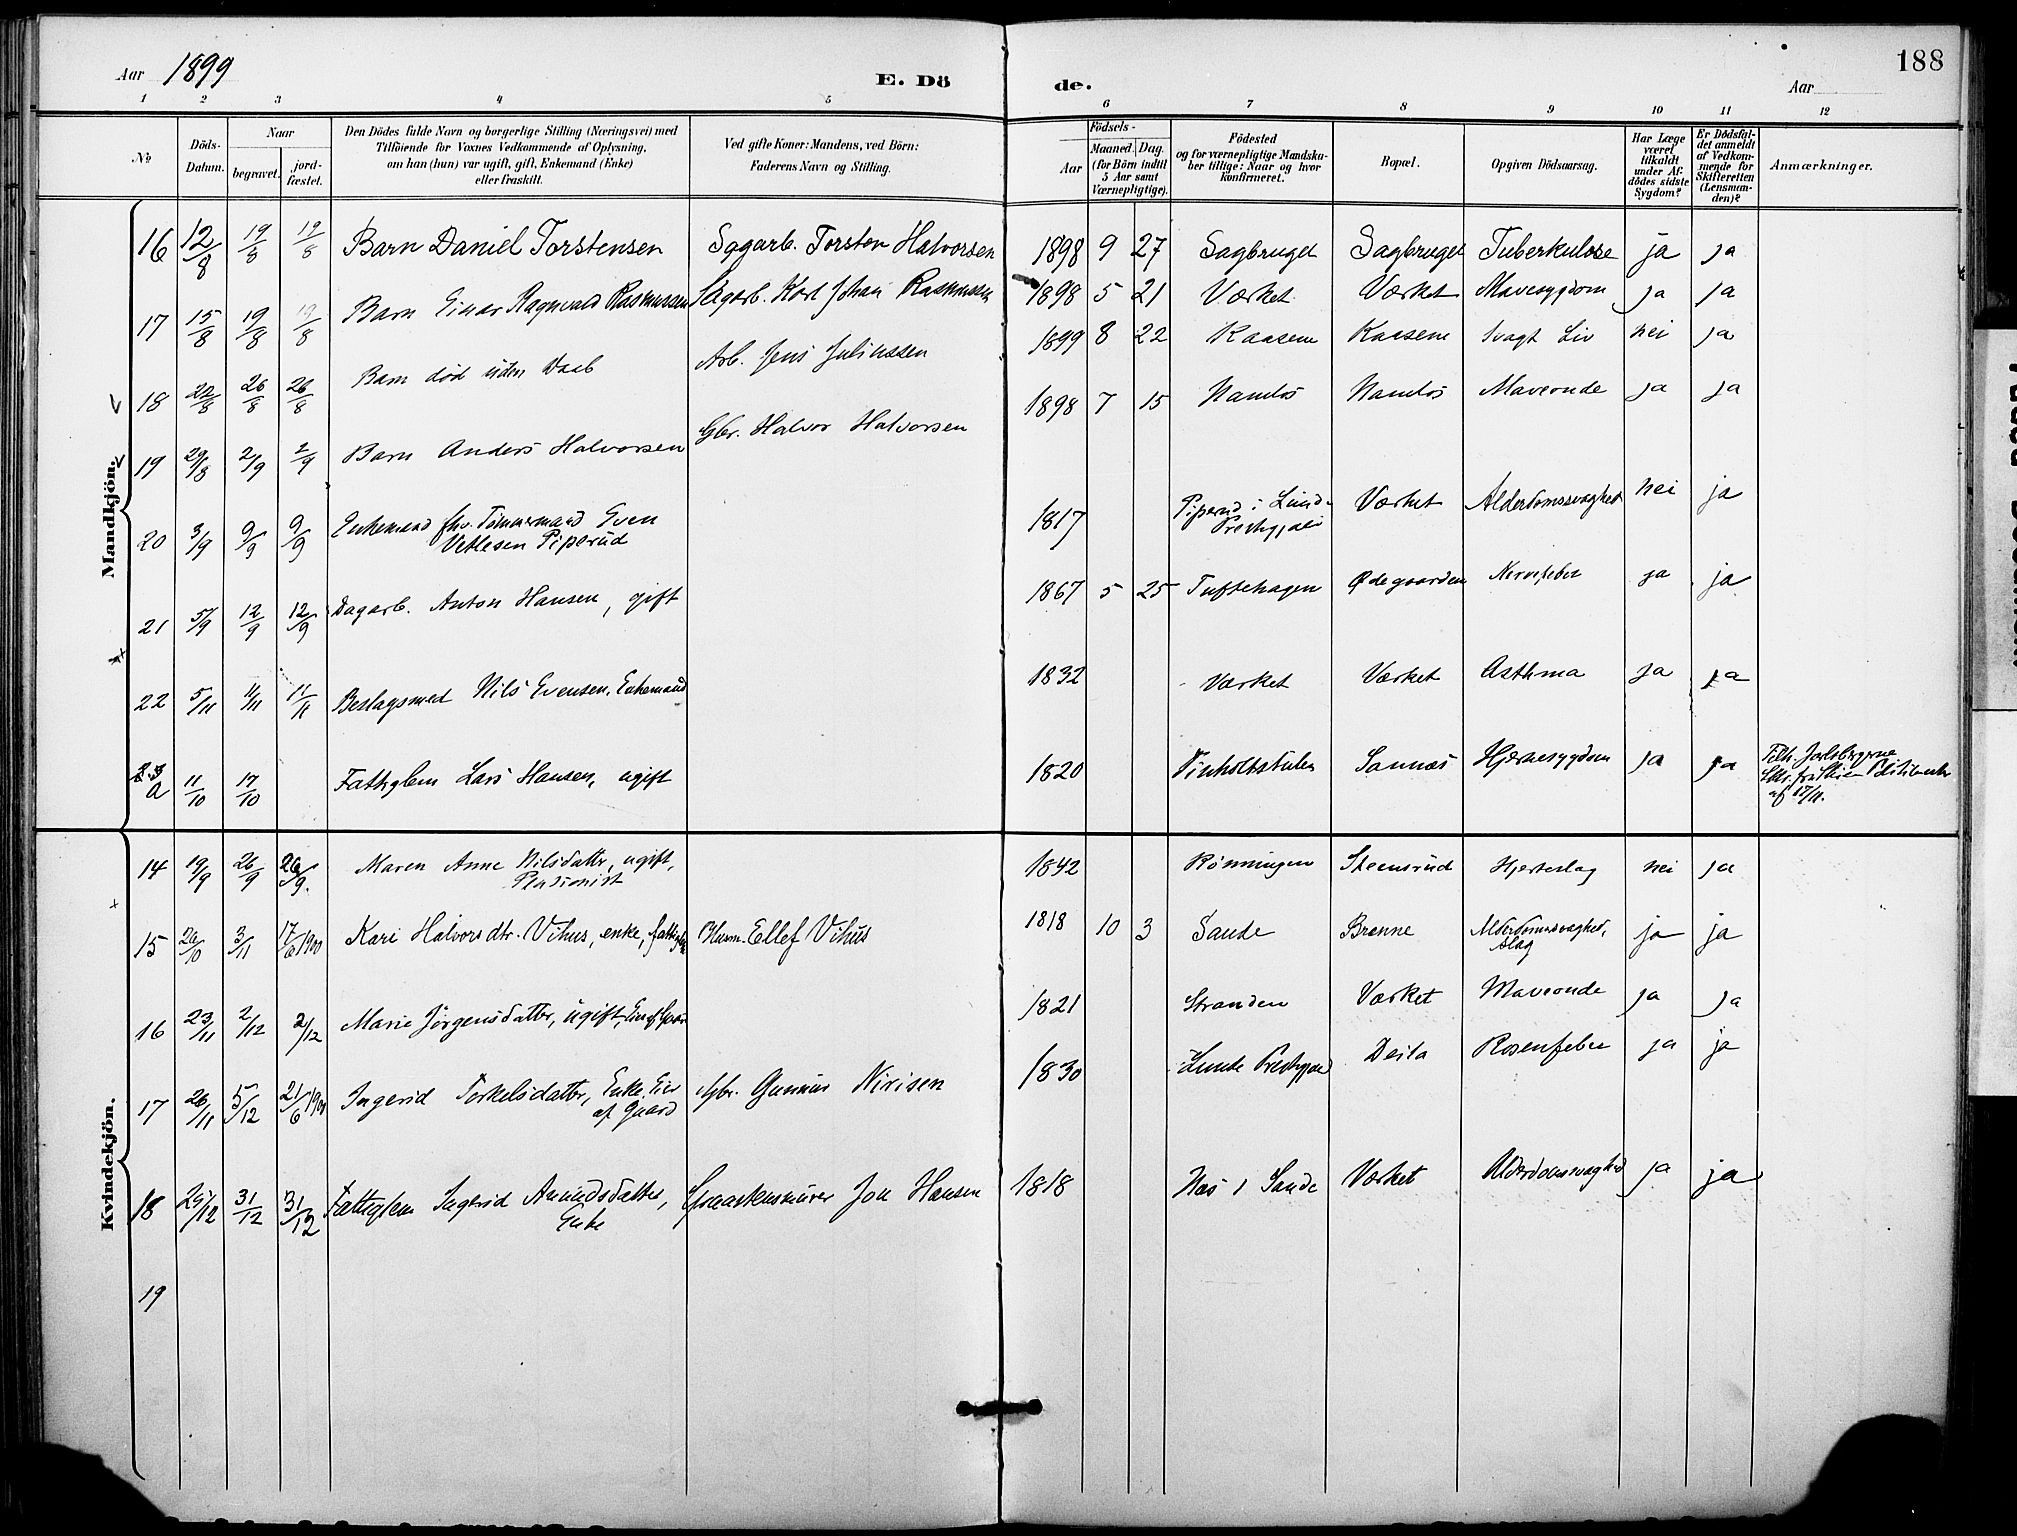 Aar 1899
E. Dö
de.
Aar
188
1 2 3 4 5 6 7 8 9 10 11 12
No
Döds-Datum.
Naar
begravet.
jord-fæstet.
Den Dödes fulde Navn og borgerlige Stilling (Næringsvei) med
Tilföiende for Voxnes Vedkommende af Oplysning,
om han (hun) var ugift, gift, Enkemand (Enke)
eller fraskilt.
Ved gifte Koner: Mandens, ved Börn:
Faderens Navn og Stilling.
Födsels-
Aar
Maaned. Dag.
(for Börn indtil
5 Aar samt
Værnepligtige).
Födested
og for værnepligtige Mandska-
ber tillige: Naar og hvor
konfirmeret.
Bopæl.
Opgiven Dödsaarsag.
Har Læge
været
tilkaldt
under Af-
dödes sidste
Sygdom?
Er Dödsfal-
det anmeldt
af Vedkom-
mende for
Skifteretten
(Lensman-
den)?
Anmærkninger.
Mandkjön.
16 12/8 19/8 19/8 Barn Daniel Torstensen Sagarb. Torsten Halvorsen 1898 9 27 Sagbruget Sagbruget Tuberkulose ja ja
17 15/8 19/8 19/8 Barn Einar Ragnvald Rasmussen Sagarb. Karl Johan Rasmussen 1898 5 21 Værket Værket Mavesygdom ja ja
18 22/8 26/8 26/8 Barn död uden Daab Arb. Jens Juliussen 1899 8 22 Kaasene Kaasene Svagt Liv nei ja
19 29/8 2/9 2/9 Barn Anders Halvorsen Gbr. Halvor Halvorsen 1898 7 15 Namlös Namlös Maveonde ja ja
20 3/9 9/9 9/9 Enkemand fhv. Tömmermand Even
Vetlesen Piperud 1817 Piperud i Lunde
Prestegjæld Værket Alderdomssvaghed nei ja
21 5/9 12/9 12/9 Dagarb. Anton Hansen, gift 1867 5 25 Tuftehagen Ødegaarden Nervefeber ja ja
22 5/11 11/11 11/11 Beslagsmed Nils Evensen, Enkemand 1832 Værket Værket Asthma ja ja
23
a 11/10 17/10 Fattiglem Lars Hansen, ugift 1820 Vinholtstulen Sannæs Hjernesygdom ja ja
af 17/11.
Kvindekjön.
14 19/9 26/9 26/9. Maren Anne Nilsdatter, ugift,
Pensionist 1842 Rønningen Steensrud Hjerteslag nei ja
15 29/10 3/11 17/6 1900 Kari Halvorsdtr. Vihus, enke, fattiglem Husm. Ellef Vihus 1818 10 3 Sande Brenne Alderdomssvaghed,
slag ja ja
16 23/11 2/12 2/12 Marie Jörgensdatter, ugift, 1821 Stranden Værket Maveonde ja ja
17 26/11 5/12 21/6 1900 Ingerid Torkelsdatter, Enke, Eier
af Gaard Gbr. Gunnar Nirisen 1830 Lunde Prestegjæld Deila Rosenfeber ja ja
18 25/12 31/12 31/12 Fattiglem Ingerid Amundsdatter,
Enke Jon Hansen 1818 Næs i Sande Værket Alderdomssvaghed ja ja
19